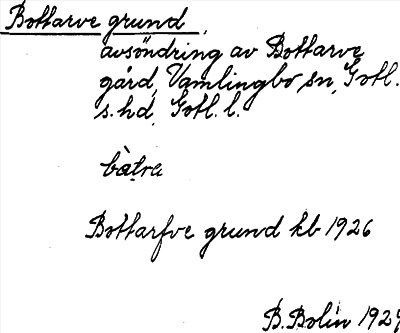 Bottarve grund,
avsöndring av Bottarve
gård, Vamlingbo sn, Gotl.
s. hd, Gotl. l.
bàtra
Bottarfve grund kb 1926
B. Bolin 1929